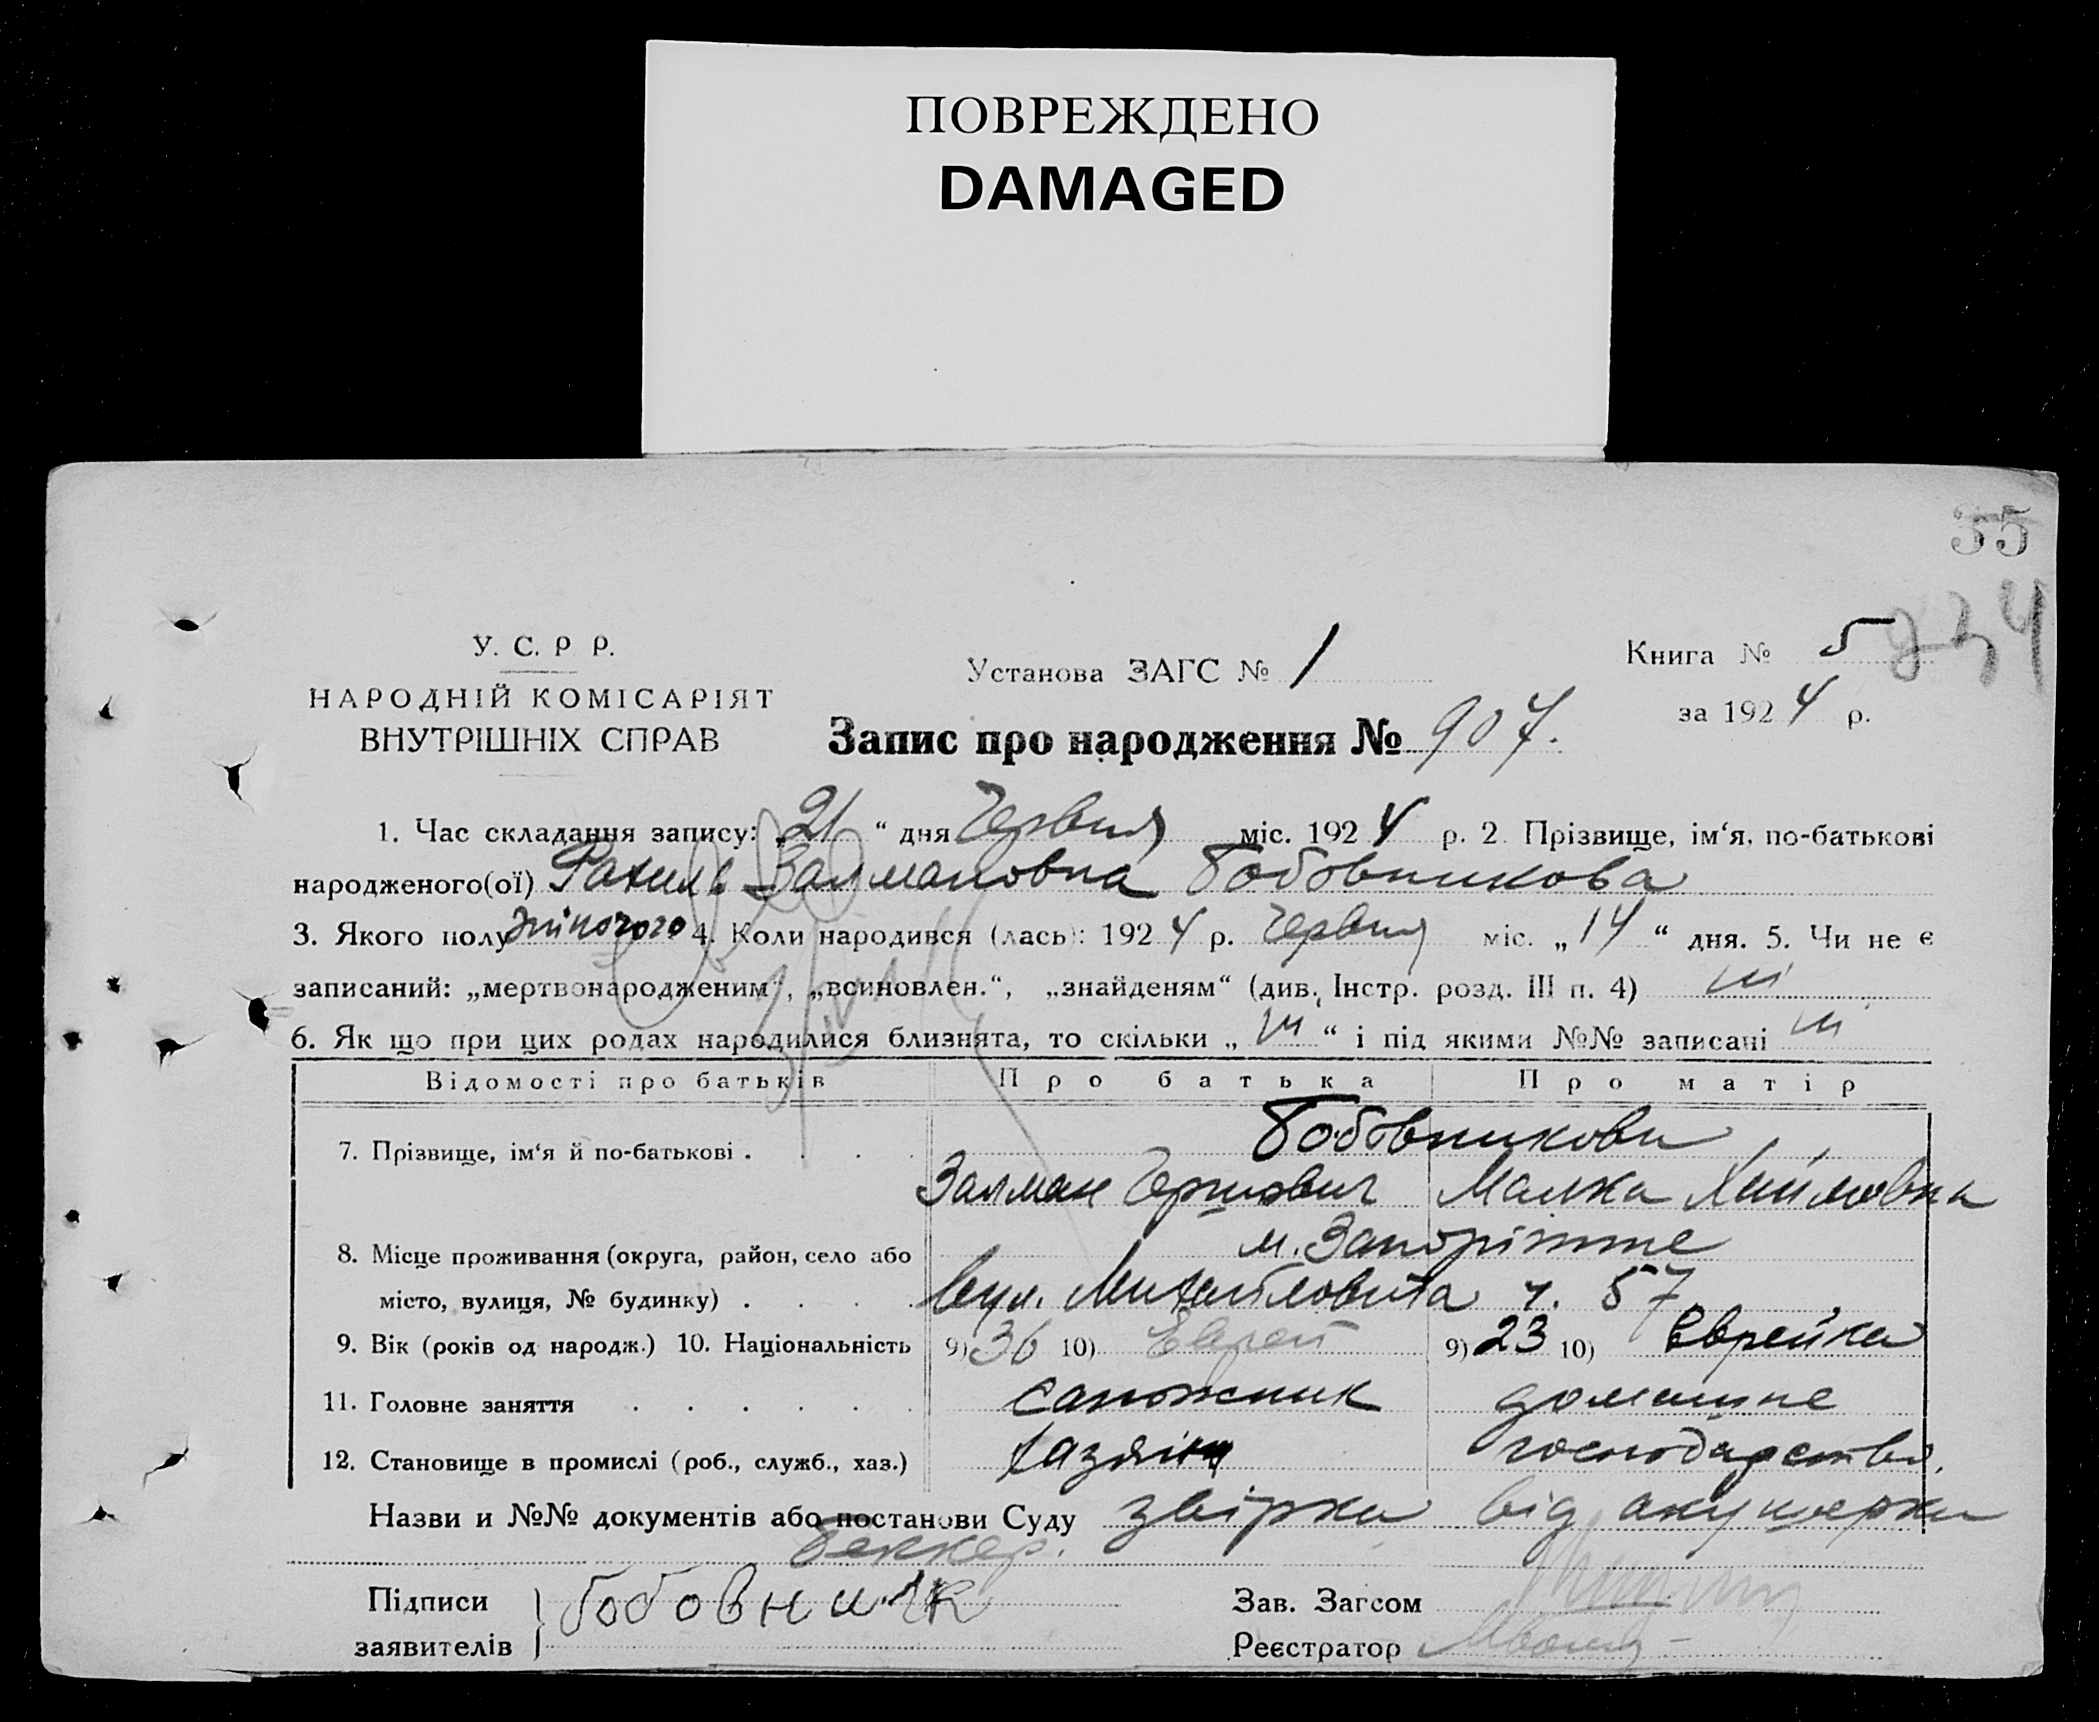 ПОВРЕЖДЕНО
DAMAGED
55
234
У. С. Р Р.
НАРОДНІЙ КОМІСАРІЯТ
ВНУТРІШНІХ СПРАВ
Установа ЗАГС № 1
Книга № 5
за 1924 р.
Запис про народження № 907.
1. Час складання запису: „21“ дня Червня міс. 1924 р. 2. Прізвище, ім‘я, по-батькові
народженого(ої) Рахиль Залмановна Бобовникова
3. Якого полу жіночого 4. Коли народився (лась): 1924 р. Червня міс. „14“ дня. 5. Чи не є
записаний: „мертвонародженим“, „всиновлен.“, „знайденям“ (див. Інстр. розд. III п. 4) ні
6. Як що при цих родах народилися близнята, то скільки „ні“ і під якими №№ записані ні
Відомості про батьків Про батька Про матір
7. Прізвище, ім‘я й по-батькові . . . . Бобовникови
Залман Гершович Малка Хаймовна
8. Місце проживання (округа, район, село або м. Запоріжжє
місто, вулиця, № будинку) . . . . вул. Михайловська ч. 57
9. Вік (років од народж.) 10. Національність 9) 36 10) Еврей 9) 23 10) Еврейка
11. Головне заняття . . . . . . сапожник домашнє
12. Становище в промислі (роб., служб., хаз.) хазяін господарство.
Назви и №№ документів або постанови Суду звірка від акушерки
Беккер.
Підписи Бобовник Зав. Загсом
заявителів Реєстратор